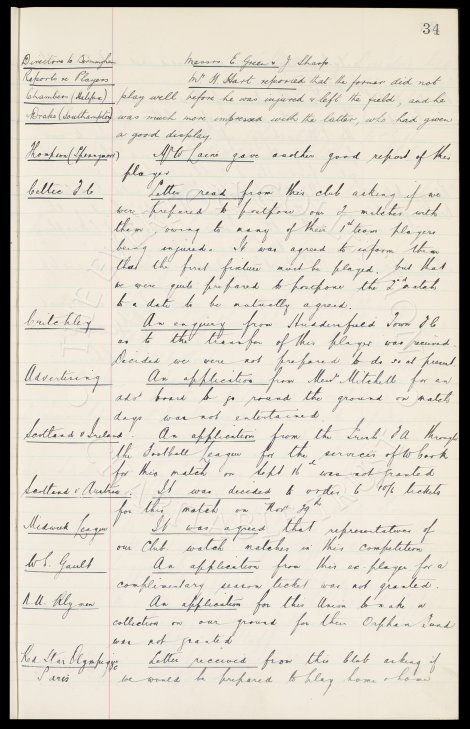 34
Directors to Birmingham Messrs E. Green & J Sharp.
Reports re Players Mr W. Hart reported that the former did not
Chambers (Halifax) play well before he was injured & left the field, and he
Drake (Southampton) was much more impressed with the latter, who had given
a good display.
Thompson ( Mr W Laine gave another good report of this
player
Celtic F.C. Letter read from this club asking if we
were prepared to postpone our 2 matches with
them, owing to many of their 1st team players
being injured. It was agreed to inform them
that the first fixture must be played, but that
we were quite prepared to postpone the 2nd match
to a date to be mutually agreed.
Critchley An enquiry from Huddersfield Town F.C
as to the transfer of this player was received.
Decided we were not prepared to do so at present
Advertising An application from Mitchell for an
advt board to go round the ground on match
days was not entertained
Scotland v Ireland. An application from the Irish F.A. through
the Football League for the services of W Cook
for this match on Sept 16 was not granted
Scotland v Austria. It was decided to order 6 10/6 tickets
for this match on Nov 29th
Midweek League It was agreed that representatives of
our Club watch matches in this competition
W.E. Gault An application from this ex player for a
complimentary season ticket was not granted.
N.U. Rlymen An application for this Union to make a
collection on our ground for their Orphan Fund
was not granted
Red Star Olympique Letter received from this Club asking if
Paris we would be prepared to play home & home